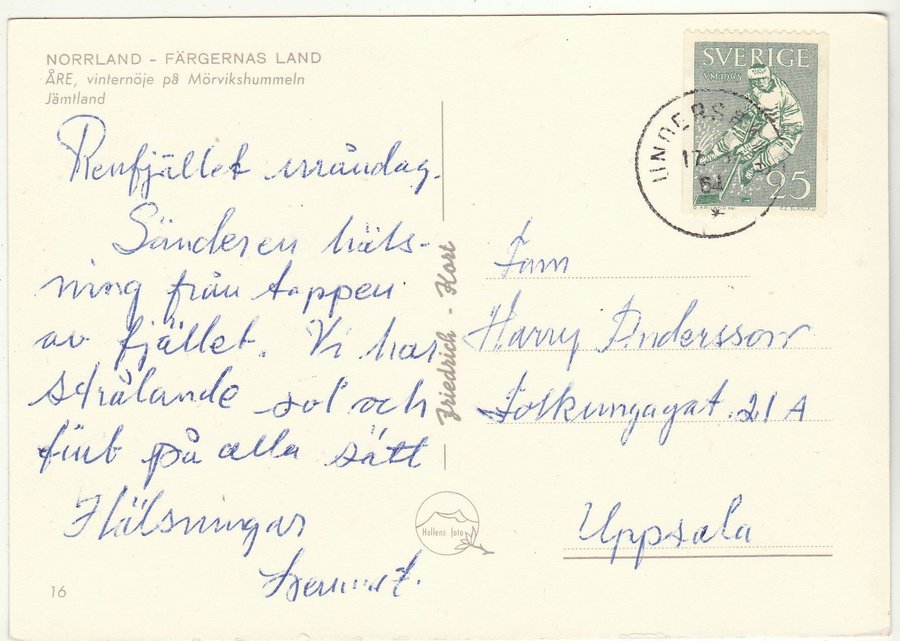 NORRLAND - FÄRGERNAS LAND
ÅRE, vinternöje på Mörvikshummeln
Jämtland
Renfjället måndag.
Sänder en häls-
ning från toppen
av fjället. Vi har
strålande sol och
fint på alla sätt
Hälsningar
16
Friedrich - Kort
Hallens foto
SVERIGE
VM 1963
25
UNDERSÅKER
17
64
Fam
Harry Andersson
Folkungagat. 21 A
Uppsala